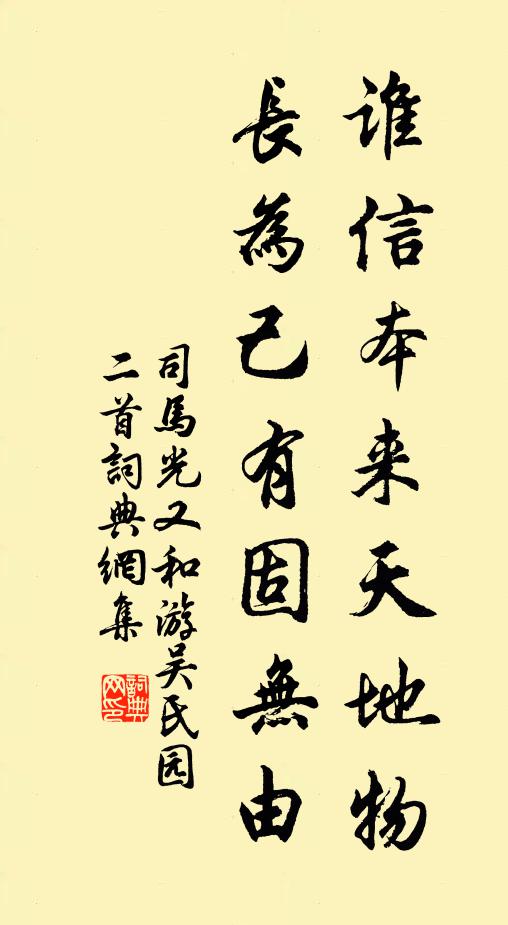 谁信本来天地物
長為己有固無由
司馬光又和游吴氏园
二首詞典網集
詞典
网印